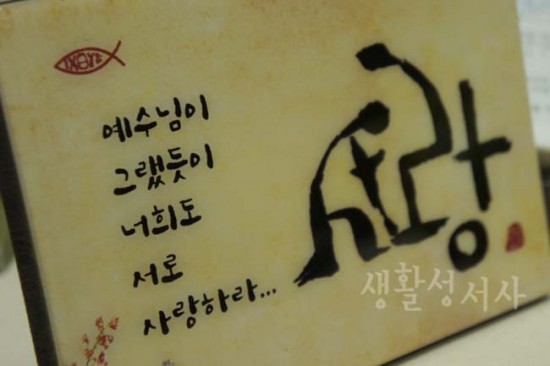 예수님이
그랬듯이
너희도
서로
사랑하라...
사랑
생활성서사